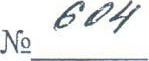 № 604